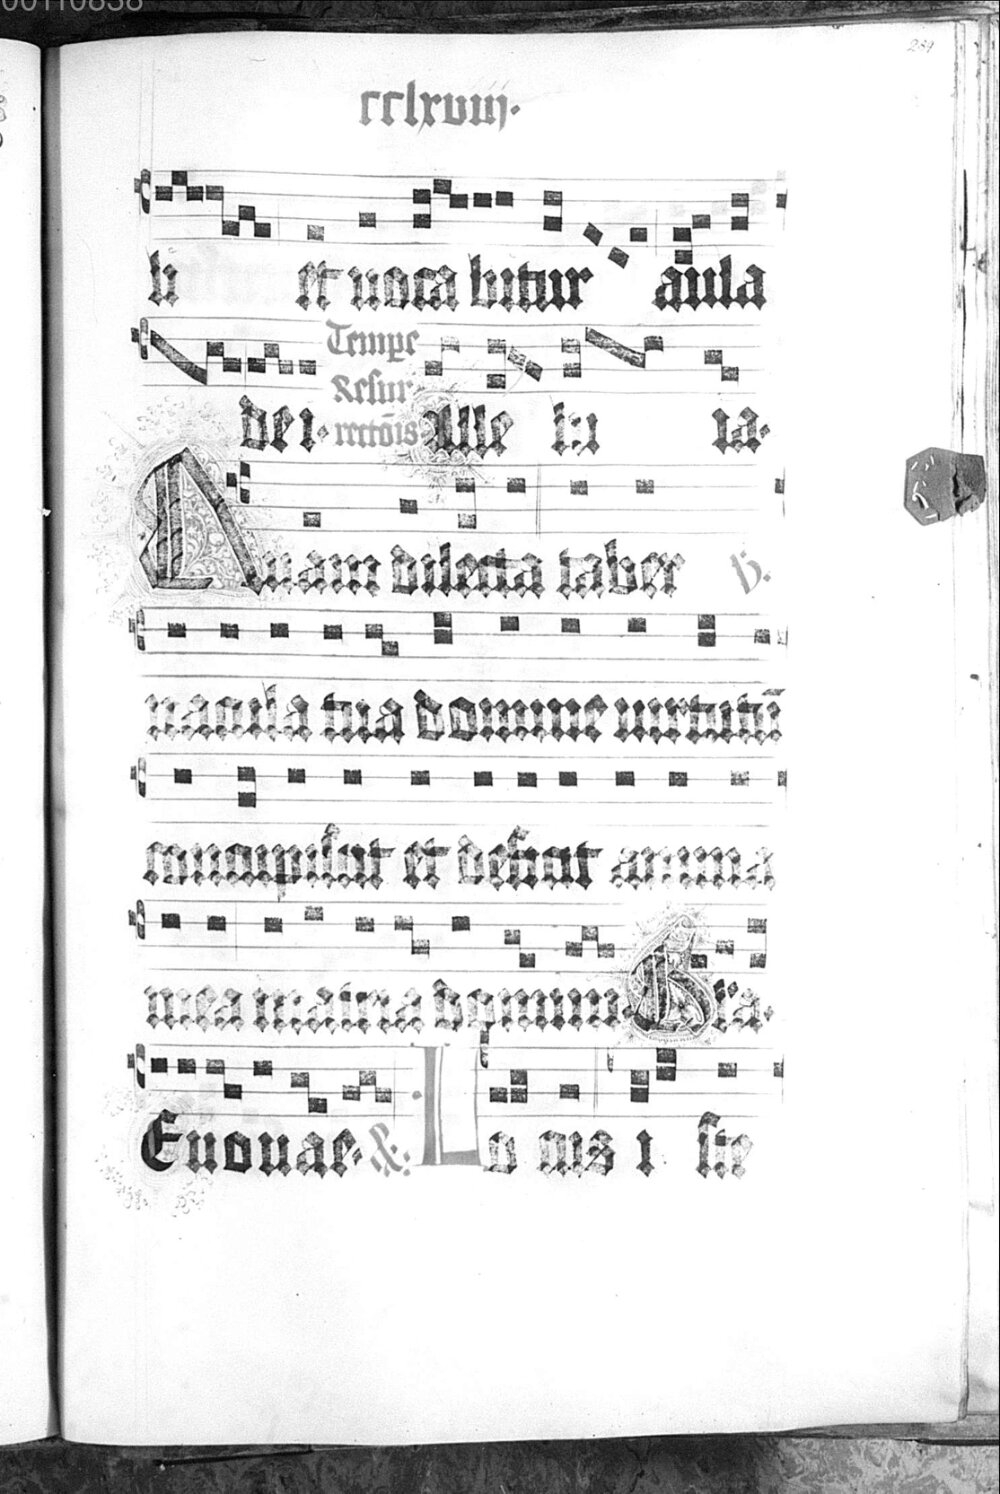 00110838
289
cclxviij.
li et uoca bitur aula
Tempe
Resur
dei. rectõis Alle lu ia.
Quam dilecta taber v.
nacula tua domine uirtutũ
concupiscit et deficit anima
mea in atria domini Gra.
Euouae. &. Lo cus i ste